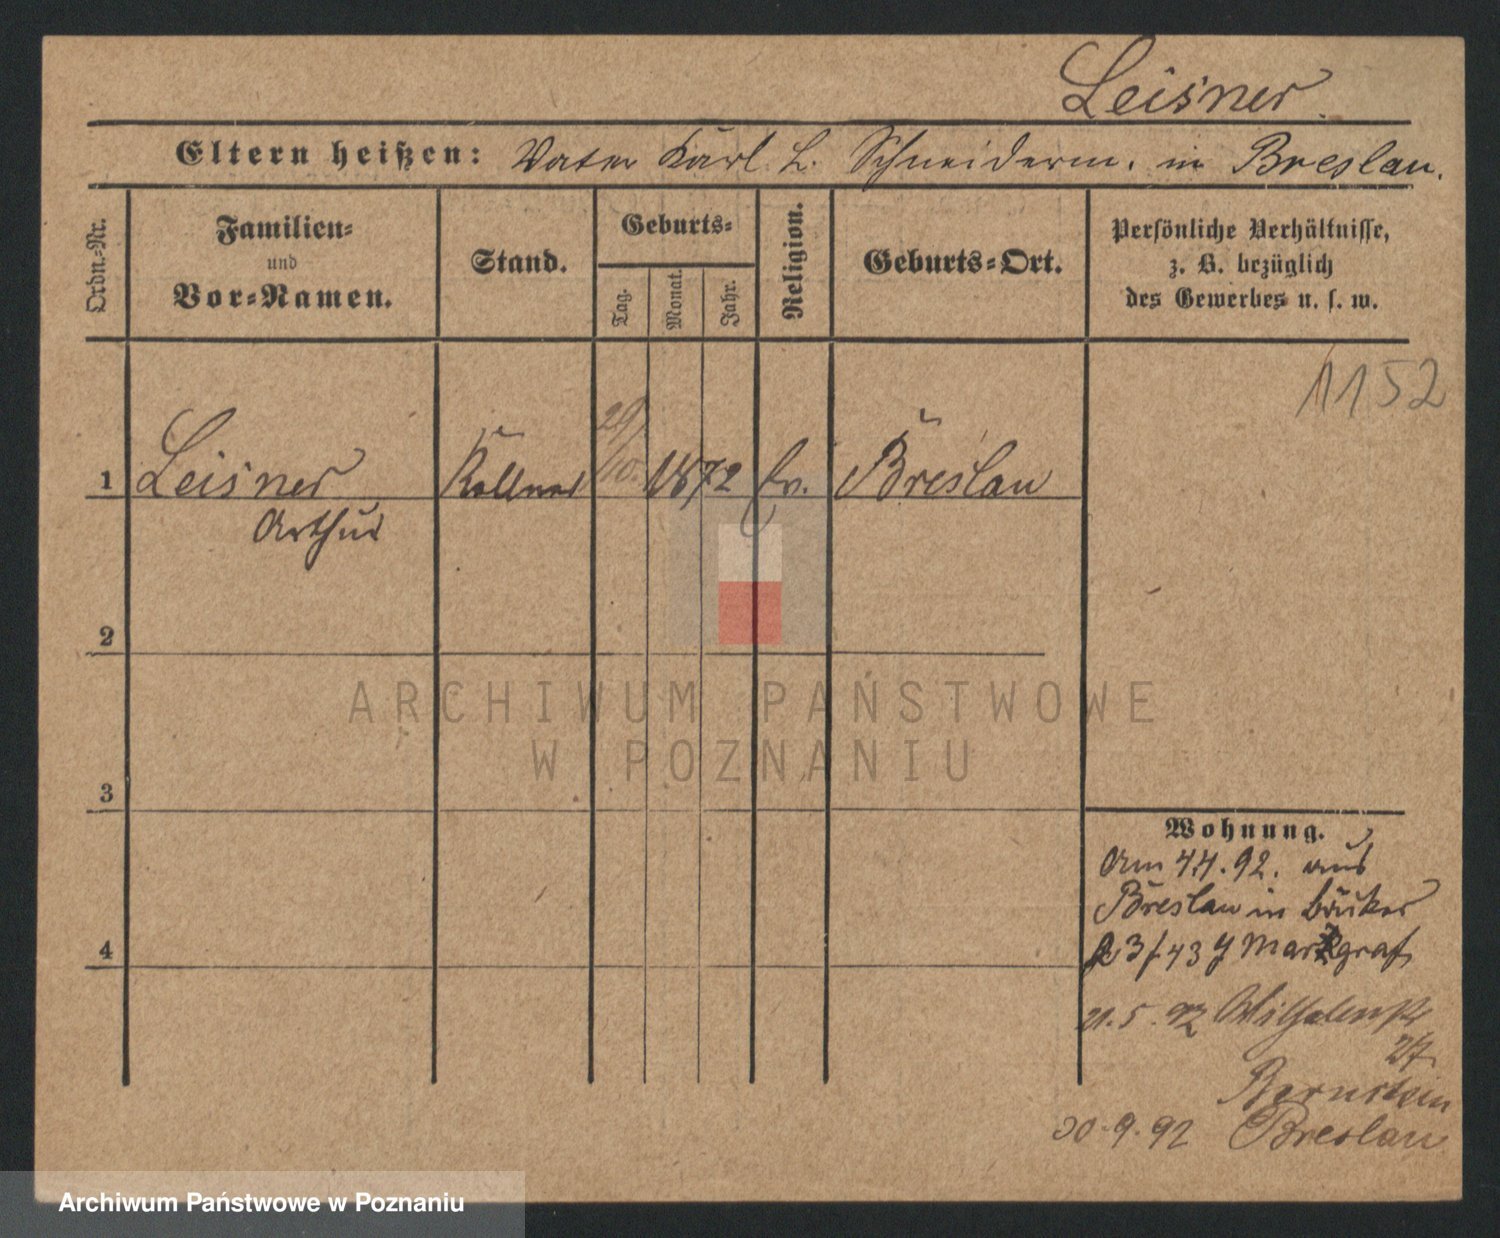 Leisner
Eltern heißen: Vater Karl L. Schneiderm. in Breslau.
Ordn.-Nr.
Familien-
und
Vor-Namen.
Stand.
Geburts-
Tag.
Monat.
Jahr.
Religion.
Geburts-Ort.
Persönliche Verhältnisse,
z. B. bezüglich
des Gewerbes u. s. w.
1152
29/10.
1 Leisner Kellner 1872 Ev. Breslau
Arthur
2
ARCHIWUM PAŃSTWOWE
W POZNANIU
3
4
Wohnung.
Am 4.4.92. aus
Breslau in
Markgraf
21.5.92 Wilhelmstr
27
Bernstein
30.9.92 Breslau
Archiwum Państwowe w Poznaniu